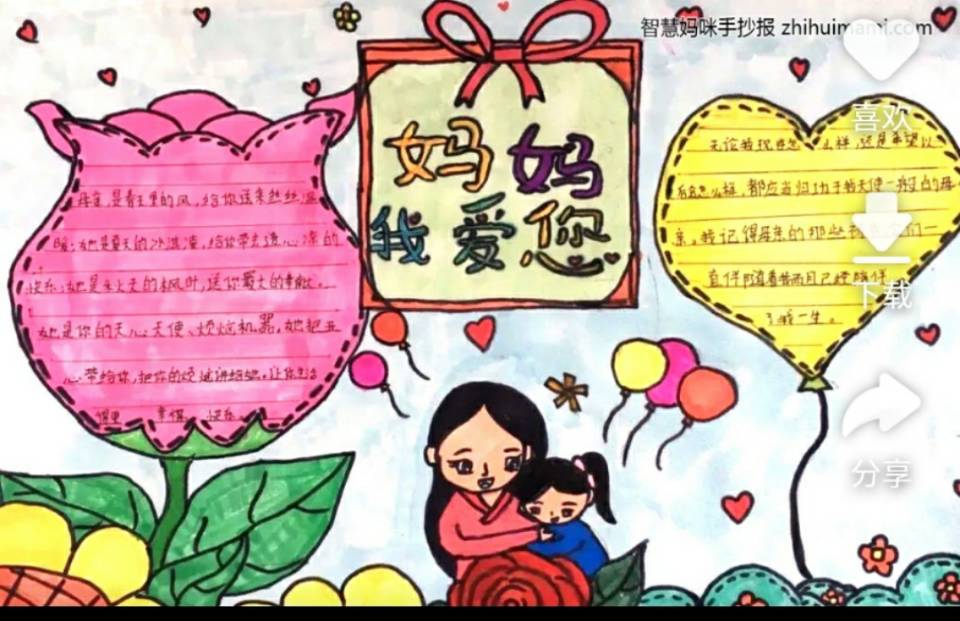 智慧妈咪手抄报 zhihuimami.com
妈 妈
我 爱 您
喜欢
下载
分享
母亲,是春天里的风,给你送来丝丝温
暖;她是夏天的冰淇淋,给你带去透心凉的
快乐;她是秋天的枫叶,送你最大的
她是你的开心天使、烦恼机器,她把
心带给你,把你的烦 ,让你生活
幸福 快乐
无论我现在怎么样,还是希望以
后会怎么样,都应当归功于我天使一般的母
亲。我记得母亲的那些 一
直伴随着我
了我一生。